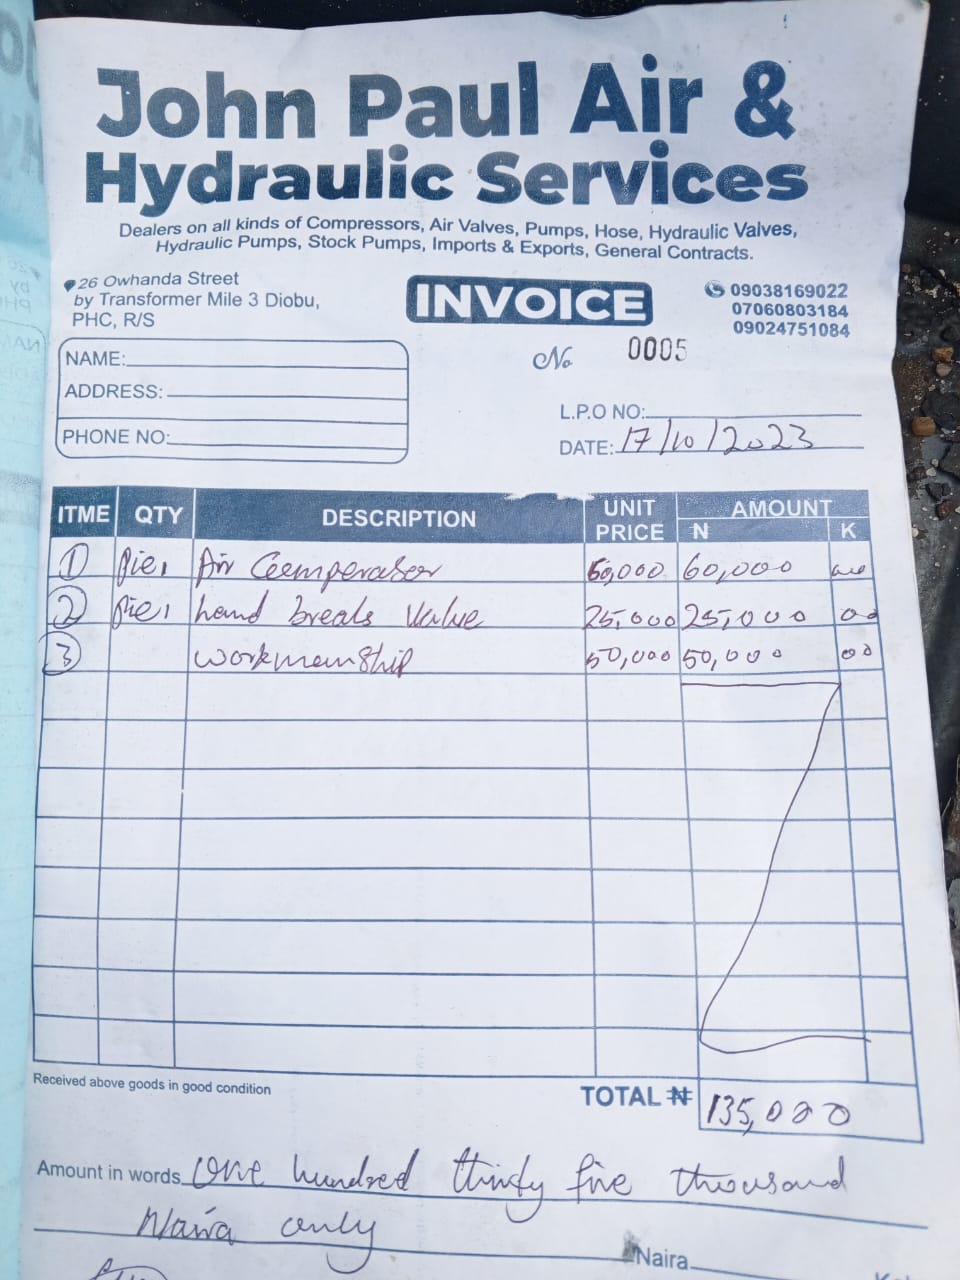 John Paul Air &
Hydraulic Services
Dealers on all kinds of Compressors, Air Valves, Pumps, Hose, Hydraulic Valves,
Hydraulic Pumps, Stock Pumps, Imports & Exports, General Contracts.
26 Owhanda Street
by Transformer Mile 3 Diobu,
PHC, R/S
INVOICE
09038169022
07060803184
09024751084
No 0005
NAME:
ADDRESS:
PHONE NO:
L.P.O NO:
DATE: 17/10/2023
ITME QTY DESCRIPTION UNIT PRICE AMOUNT N K
1 Pie1 Air Comperasor 60,000 60,000 00
2 Pie1 hand breaks Valve 25,000 25,000 00
3 workmanship 50,000 50,000 00
Received above goods in good condition
TOTAL ₦ 135,000
Amount in words One hundred thirty five thousand
Naira only
Naira